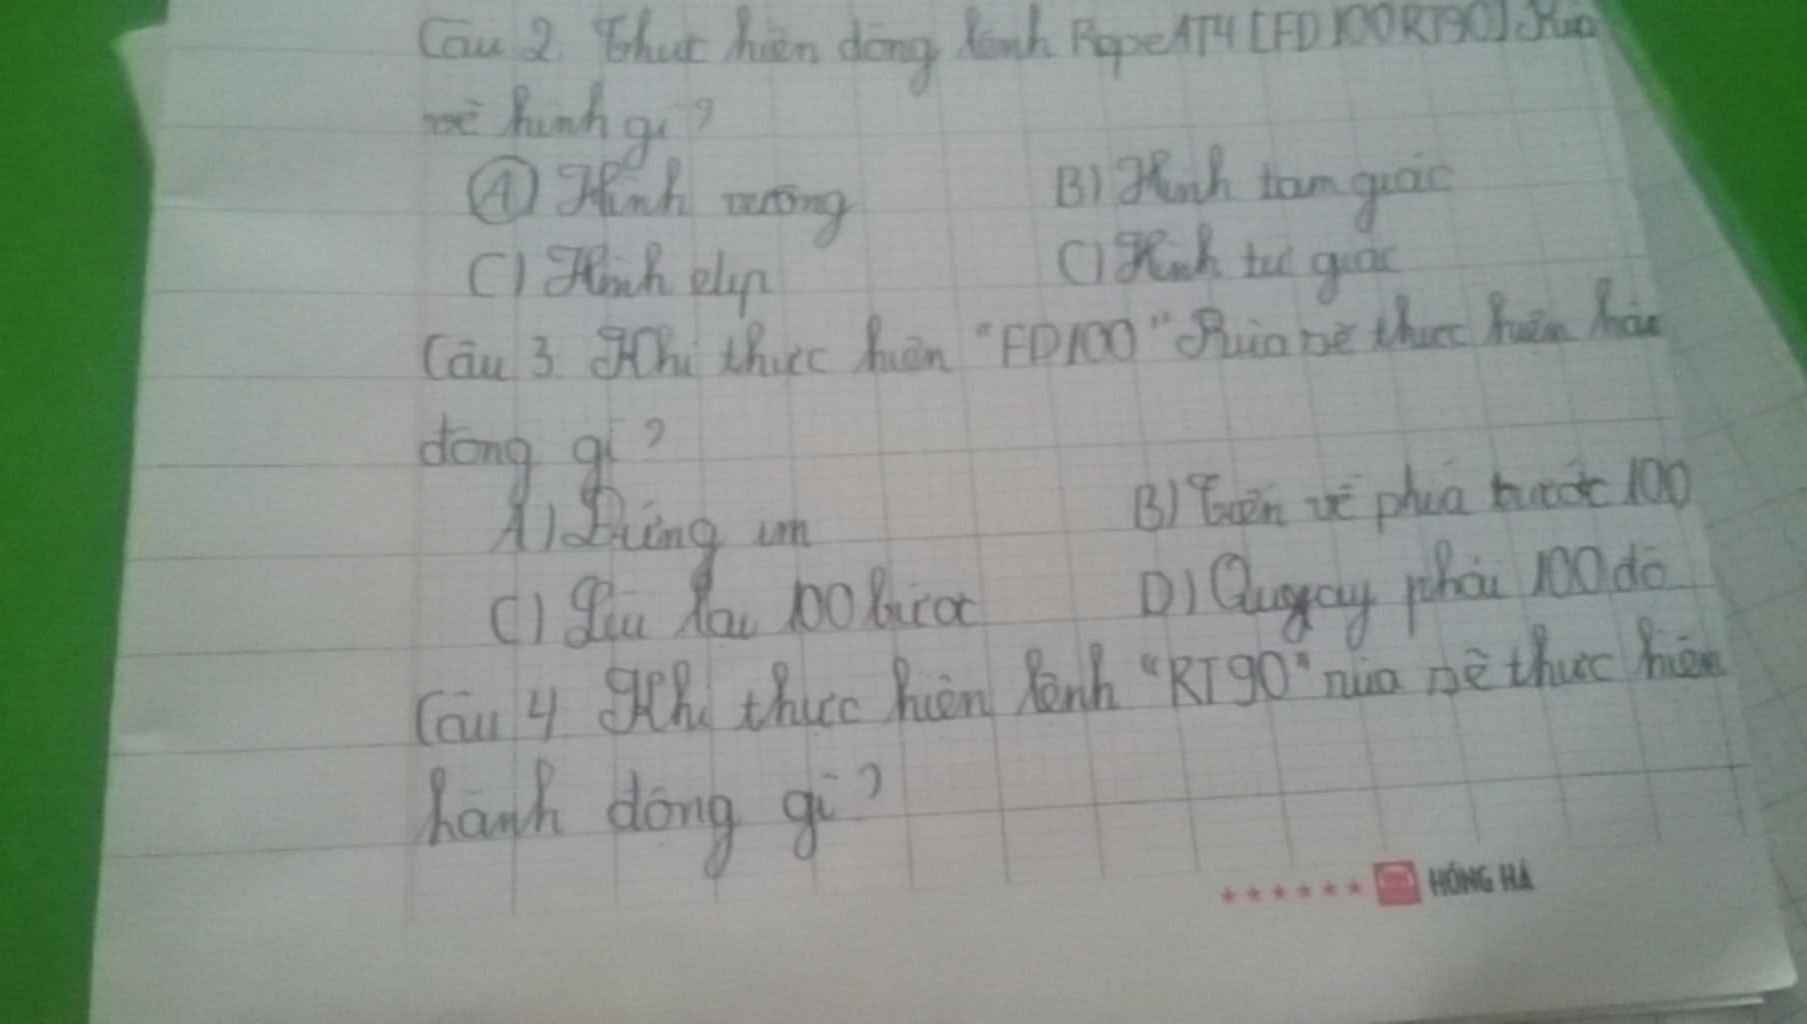 Câu 2. Thực hiện dòng lệnh RepeAT4 [FD 100 RT90] Rùa
vẽ hình gì?
A) Hình vuông B) Hình tam giác
C) Hình elip C) Hình tứ giác
Câu 3. Khi thực hiện "FD100" Rùa sẽ thực hiện hàn
động gì?
A) Đứng im B) Tiến về phía trước 100
C) Lùi lại 100 bước D) Quay phải 100 độ
Câu 4. Khi thực hiện lệnh "RT90" rùa sẽ thực hiện
hành động gì?
HỒNG HÀ